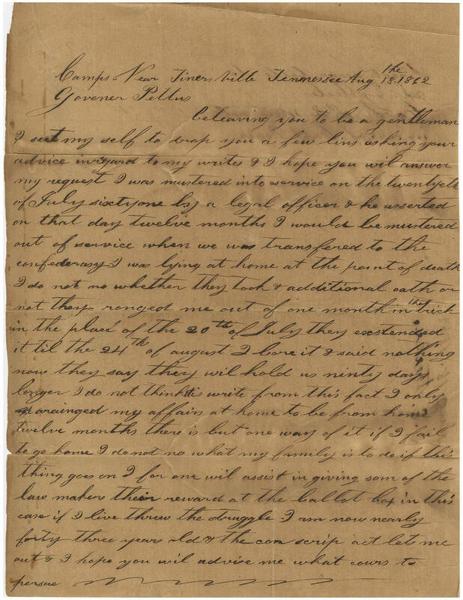 Camps Near Finer ville Tennessee Aug the 18. 1862
Govener Pettus
beleaving you to be a gentleman
I set my self to drop you a few lins wishing your
advice in regard to my writes & I hope you wil answer
my request I was mustered into service on the twentyth
of July sixtyone by a legal officer & he asserted
on that day twelve months I would be mustered
out of service when we was transfered to the
confederacy I was lying at home at the point of death
I do not no whether they took & additional oath or
not they ronged me out of one month in the trick
in the place of the 20th of July they exstended
it til the 24th of august I bore it & said nothing
now they say they wil hold us ninty days
longer I do not think tis write from this fact I only
arainged my affairs at home to be from home
twelve months there is but one way of it if I fail
to go home I do not no what my family is to do if this
thing goes on I for one wil assist in giving som of the
law makers their reward at the ballot box in this
case if I live threw the struggle I am now nearly
forty three year old & the con scrip act let me
out & I hope you wil advise me what cours to
persue